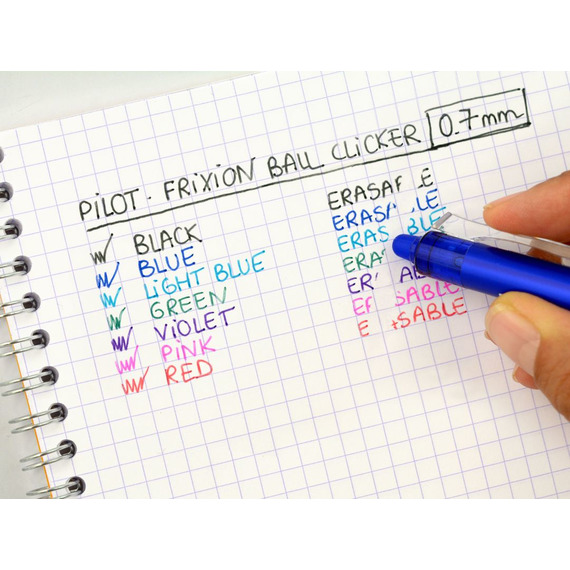 PILOT - FRIXION BALL CLICKER 0.7mm
BLACK
BLUE
LIGHT BLUE
GREEN
VIOLET
PINK
RED
ERASA LE
ERAS LE
ERAS BLE
ERA
ER AB
ER SABLE
E SABLE